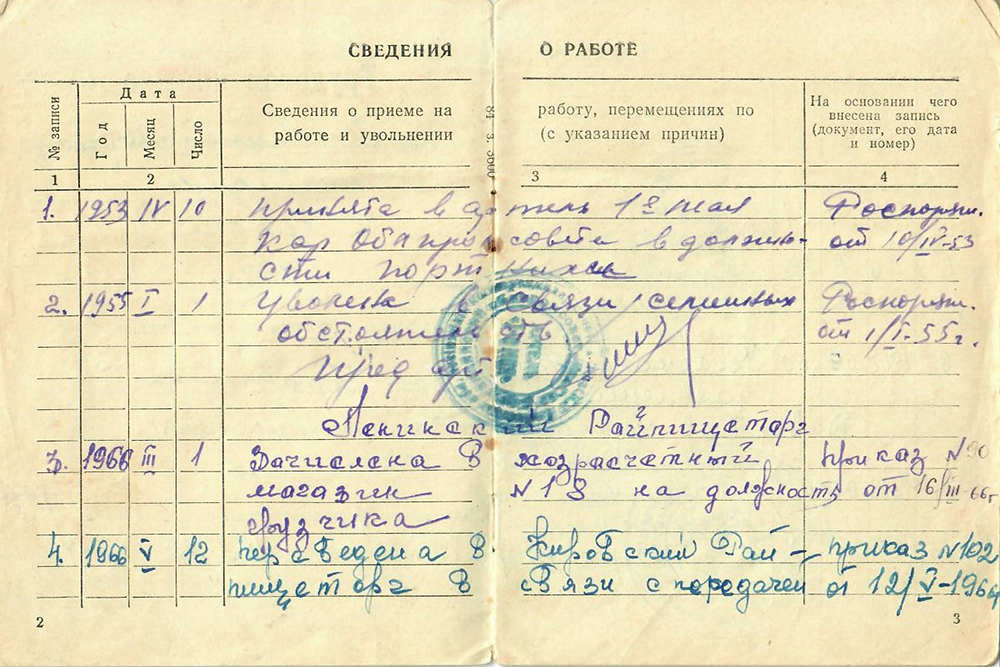 СВЕДЕНИЯ О РАБОТЕ
№ записи
Дата
Год
Месяц
Число
Сведения о приеме на работу, перемещениях по
работе и увольнении (с указанием причин)
На основании чего
внесена запись
(документ, его дата
и номер)
1 2 3 4
1. 1953 IV 10 принята в артель 1е мая Распоряж.
совета в должно- от 10/IV-53
сти порт
2. 1955 I 1 Уволена в связи семейных Распоряж.
обстоятельств от 1/I-55г.
Пред
Ленинский Райпищеторг
3. 1966 III 1 Зачислена в хозрасчетный приказ N90
магазин N13 на должность от 16/III-66г
грузчика
4. 1966 V 12 переведена в Кировский Рай- приказ N102
пищеторг в связи с передачей от 12/V-1966
2 3